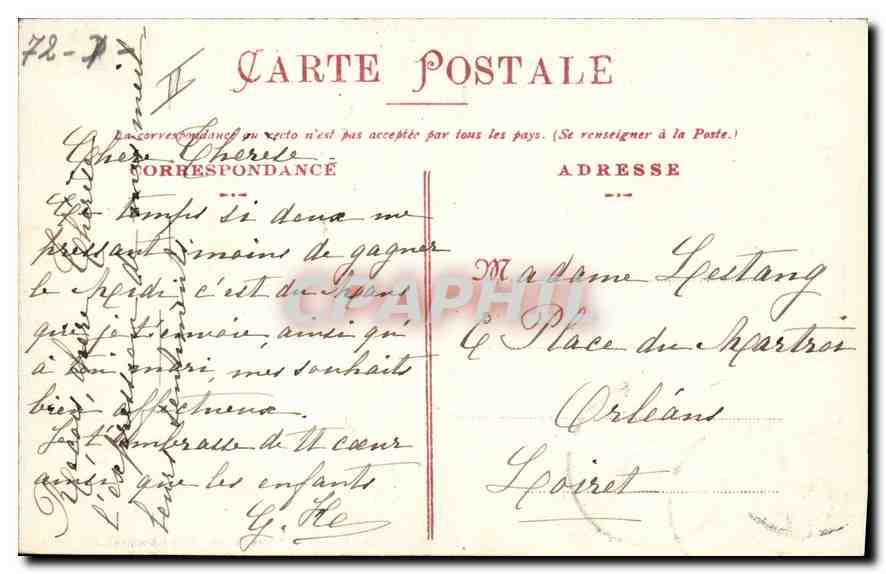 72-
II
CARTE POSTALE
La correspondance au recto n'est pas acceptée par tous les pays. (Se renseigner à la Poste.)
CORRESPONDANCE
ADRESSE
Chère Thérèse
Le temps si doux me
pressant moins de gagner
le Midi c'est du Mans
que je t'envoie, ainsi qu'
à ton mari, mes souhaits
bien affectueux.
Je t'embrasse de tt cœur
ainsi que les enfants
G.
Madame Lestang
6 Place du Martroi
Orléans
Loiret
Reçois, chère Thérèse
l'expression de
leurs sentiments
CPAPHIL